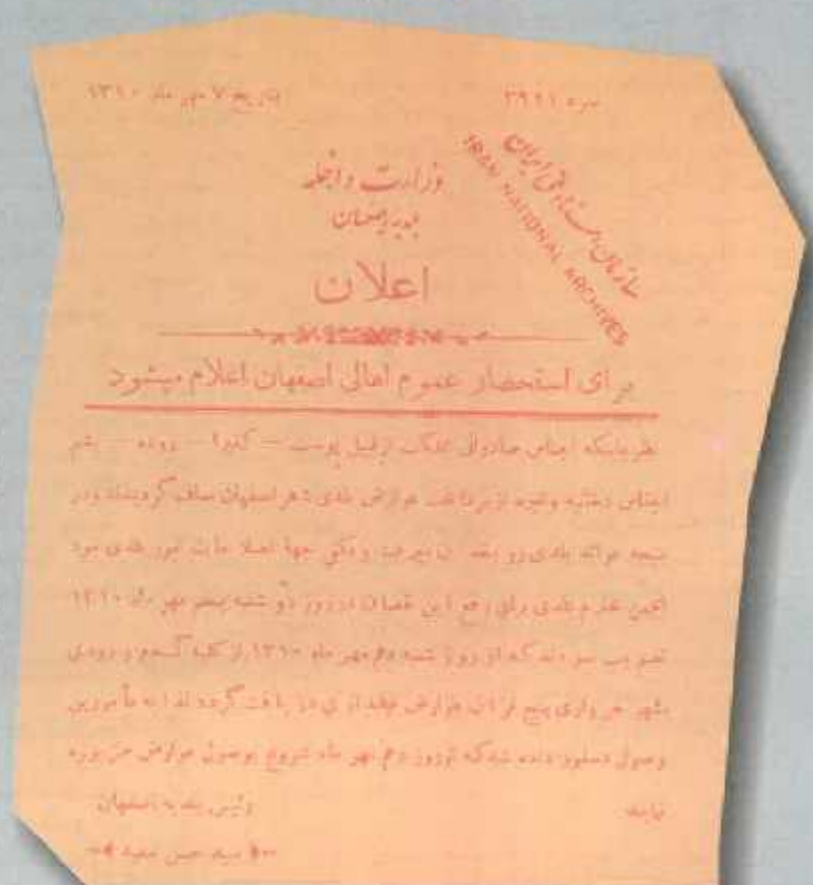 نمره ۳۹۲۱
بتاریخ ۷ مهر ماه ۱۳۱۰
سازمان اسناد ملی ایران
IRAN NATIONAL ARCHIVES
وزارت داخله
بلدیه اصفهان
اعلان
برای استحضار عموم اهالی اصفهان اعلام میشود
نظر باینکه اجناس صادراتی مملکت از قبیل پوست — کتیرا — روده — پشم
اجناس دخانیه وغیره از پرداخت عوارض بلدی شهر اصفهان معاف گردیده ودر
نتیجه عوائد بلدی رو بنقصان میرفت و امور بلدی
انجمن بلدی برای رفع این نقصان در روز دو شنبه مهر ماه ۱۳۱۰
تصویب نمودند که از روز شنبه دهم مهر ماه ۱۳۱۰ از کلیه گندم ورودی
بشهر خرواری پنج قران عوارض دریافت گردد لذا به مأمورین
وصول دستور داده شد که از روز دهم مهر ماه شروع بوصول عوارض مزبوره
نمایند
رئیس بلدیه اصفهان
سید حسن